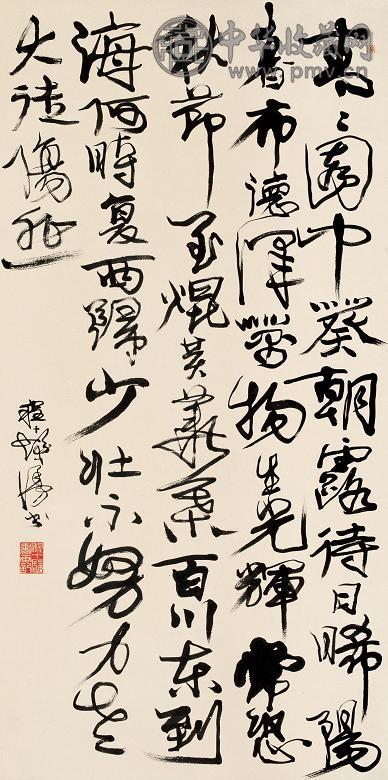 青〻園中葵朝露待日晞陽
春布德澤萬物生光輝常恐
秋節至焜黃華葉百川東到
海何時复西歸少壯不努力老
大徒傷悲
程十髮漫書
中华收藏网
www.pmv.cn